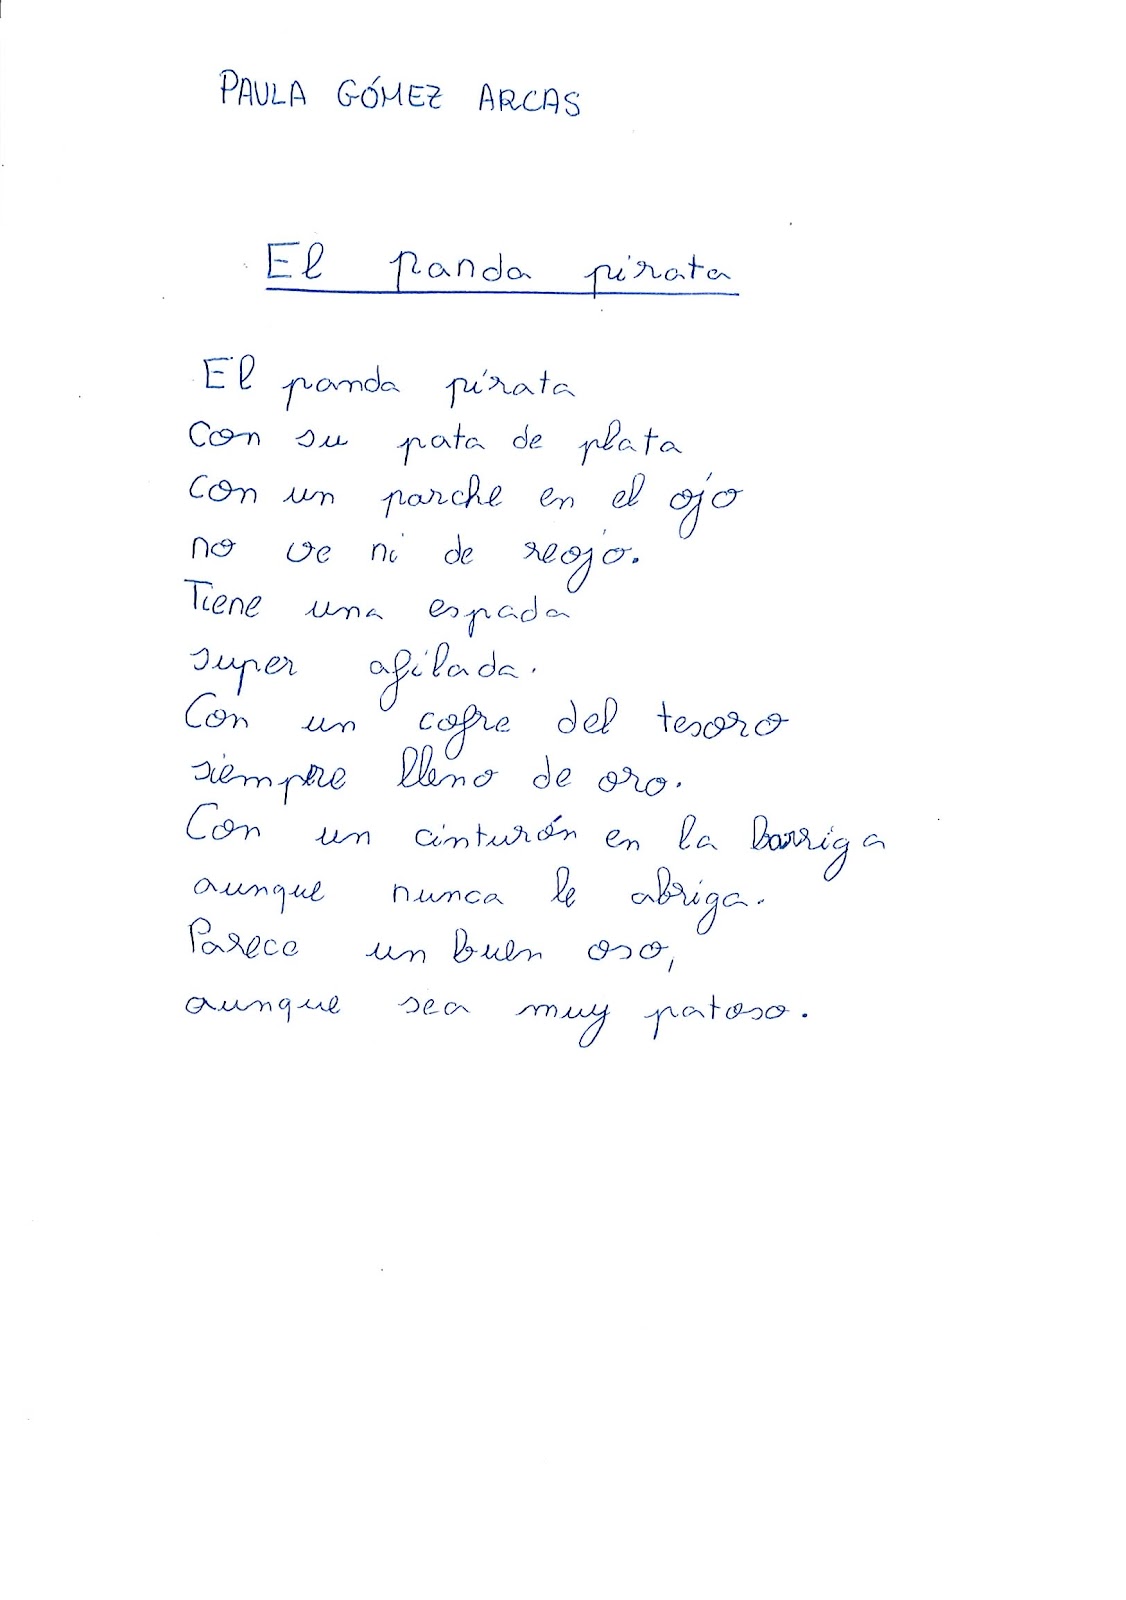 PAULA GÓMEZ ARCAS
El panda pirata
El panda pirata
Con su pata de plata
Con un parche en el ojo
no ve ni de reojo.
Tiene una espada
super afilada.
Con un cofre del tesoro
siempre lleno de oro.
Con un cinturón en la barriga
aunque nunca le abriga.
Parece un buen oso,
aunque sea muy patoso.